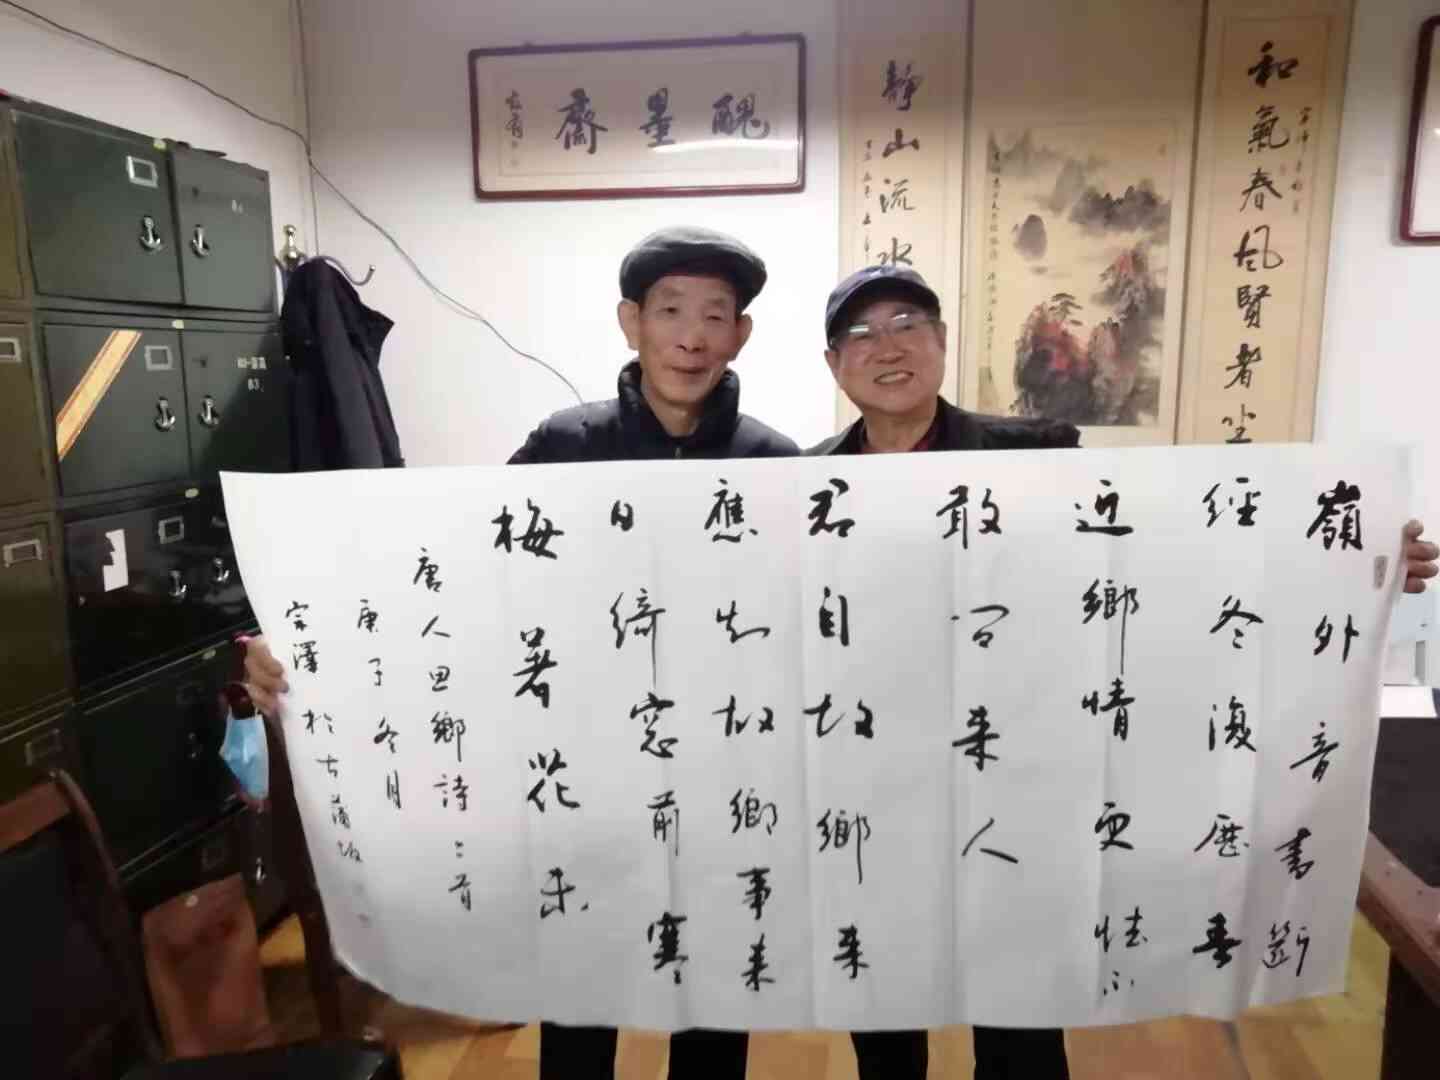 醜墨齋
靜山流水
和氣春風賢者坐
嶺外音書斷
經冬復歷春
近鄉情更怯不
敢问来人
君自故鄉来
應知故鄉事来
日綺窓前寒
梅著花未
唐人思鄉詩二首
庚子冬月
宗澤於古蒲坂
83